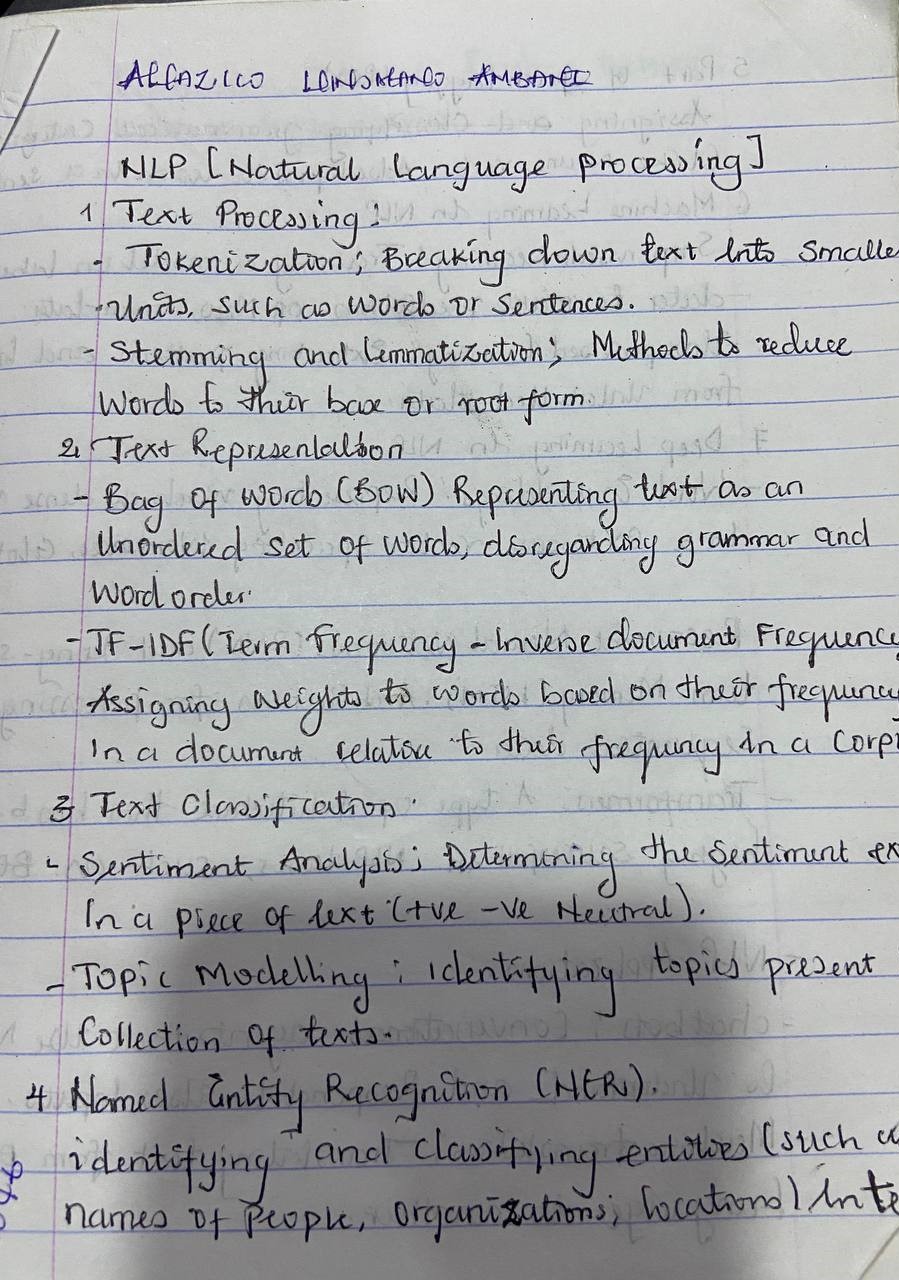 NLP [Natural Language processing]
1 Text Processing:
- Tokenization; Breaking down text Into Smalle
Units, such as words or sentences.
- Stemming and Lemmatization; Methods to reduce
Words to their base or root form.
2. Text Representation
- Bag of words (BOW) Representing text as an
Unordered set of words, disregarding grammar and
Word order.
- TF-IDF (Term frequency - Inverse document Frequency
Assigning Weights to words based on their frequency
In a document relative to their frequency In a Corp
3 Text Classification.
- Sentiment Analysis; Determining the Sentiment ex
In a piece of text (+ve -ve Neutral).
- Topic Modelling: identifying topics present
Collection of texts.
4 Named Entity Recognition (NER).
identifying and classifying entities (such a
names of people, organizations, locations) Inte